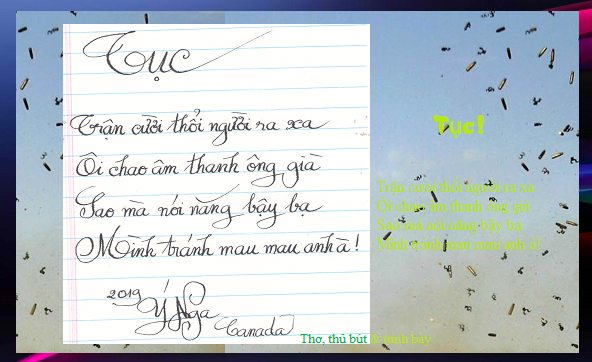 Tục
Trận cười thổi người ra xa
Ôi chao âm thanh ông già
Sao mà nói năng bậy bạ
Mình tránh mau mau anh à!
2019
Ý Nga
Canada
Tục!
Trận cười thổi người ra xa
Ôi chao âm thanh ông già
Sao mà nói năng bậy bạ
Mình tránh mau mau anh à!
Thơ, thủ bút & trình bày